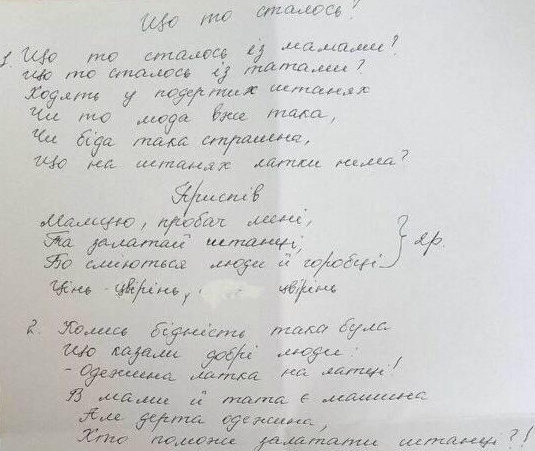 Що то сталось?
1. Що то сталось із мамами?
Що то сталось із татами?
Ходять у подертих штанях
Чи то мода вже така,
Чи біда така страшна,
Що на штанях латки нема?
Приспів
Мамцю, пробач мені,
Та залатай штанці,
Бо сміються люди й горобці } 2р.
Цінь-цвірінь, цвірінь
2. Колись бідність така була
Що казали добрі люди:
- Одежина латка на латці!
В мами й тата є машина
Але дерта одежина,
Хто поможе залатати штанці?!